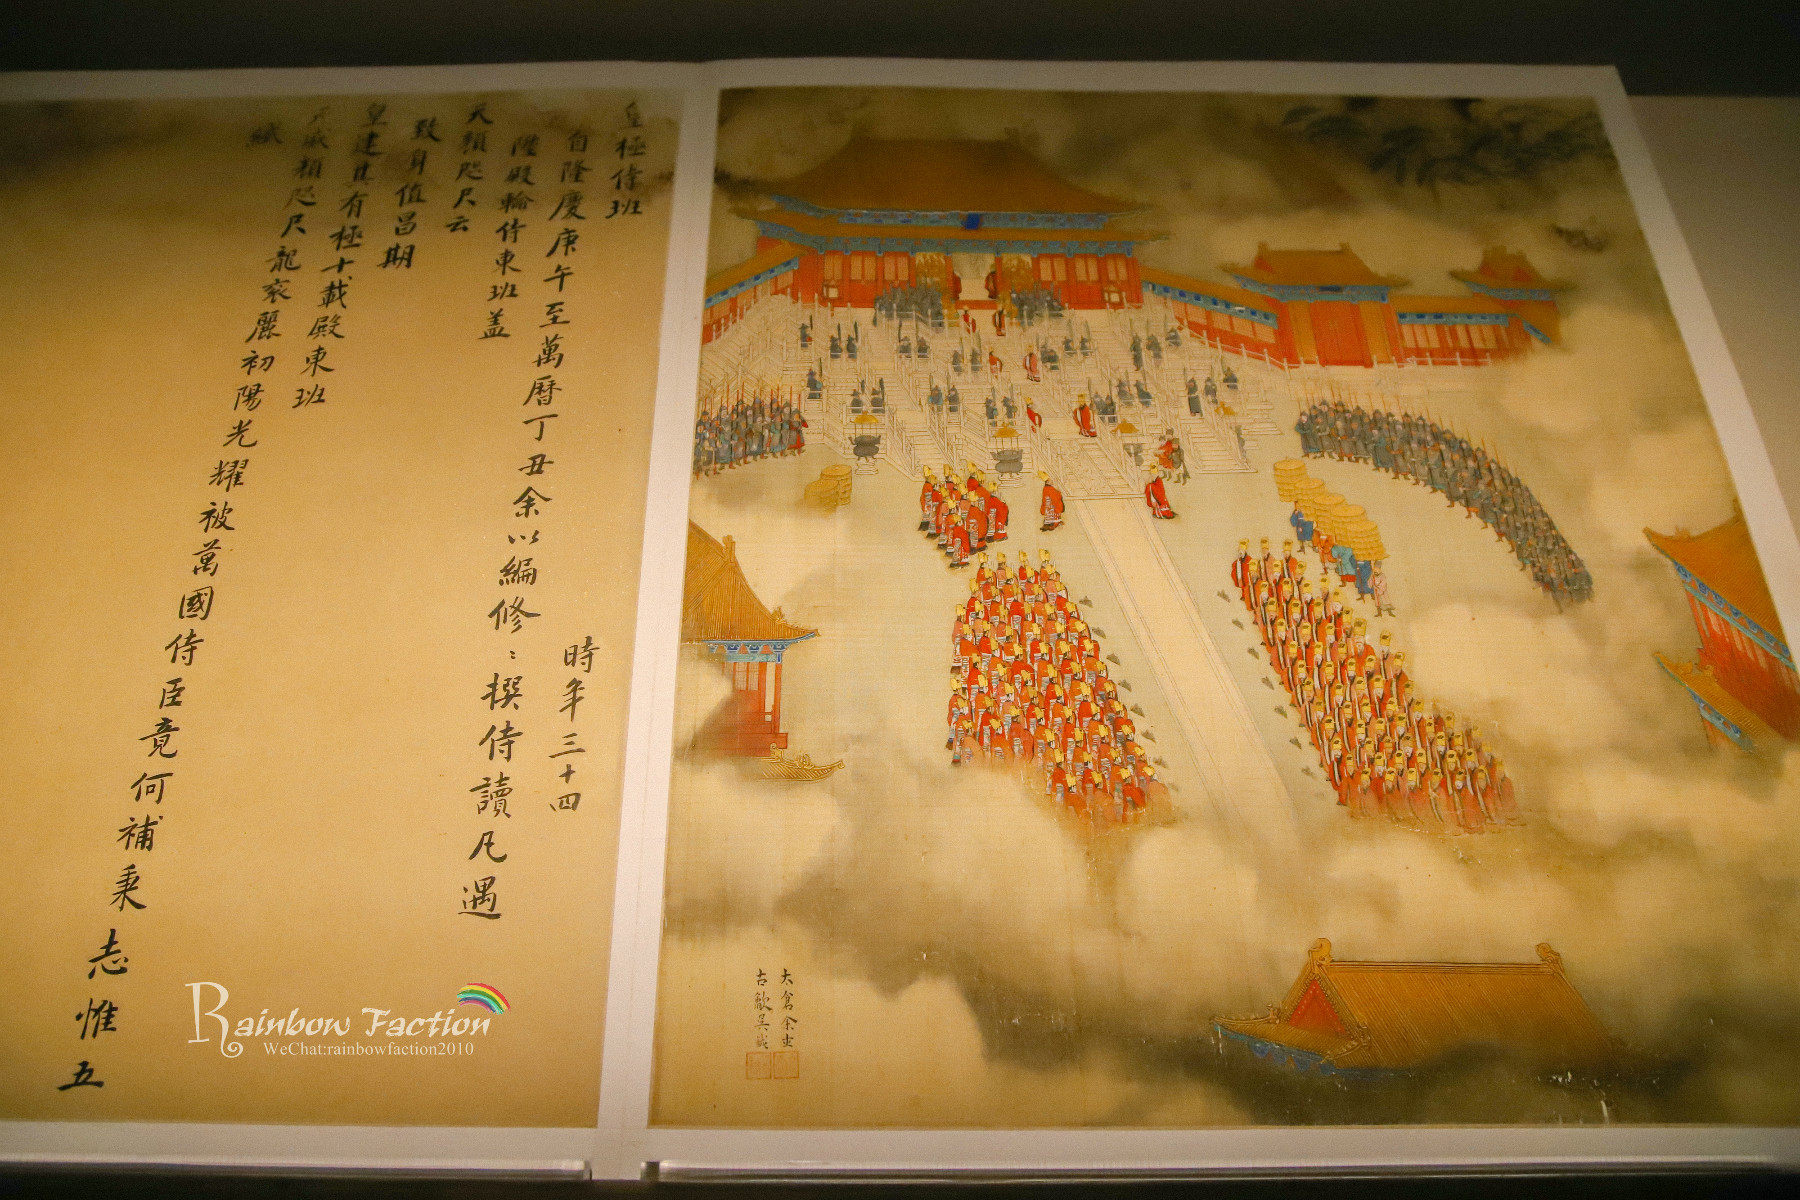 皇極侍班
自隆慶庚午至萬曆丁丑余以編修〻撰侍讀凡遇
時年三十四
陞殿輪侍東班蓋
天顏咫尺云
致身值昌期
皇建其有極十載殿東班
天威顏咫尺龍衮麗初陽光耀被萬國侍臣竟何補秉志惟五
緎
太倉余士
古歙吳鉞
Rainbow Faction
WeChat:rainbowfaction2010